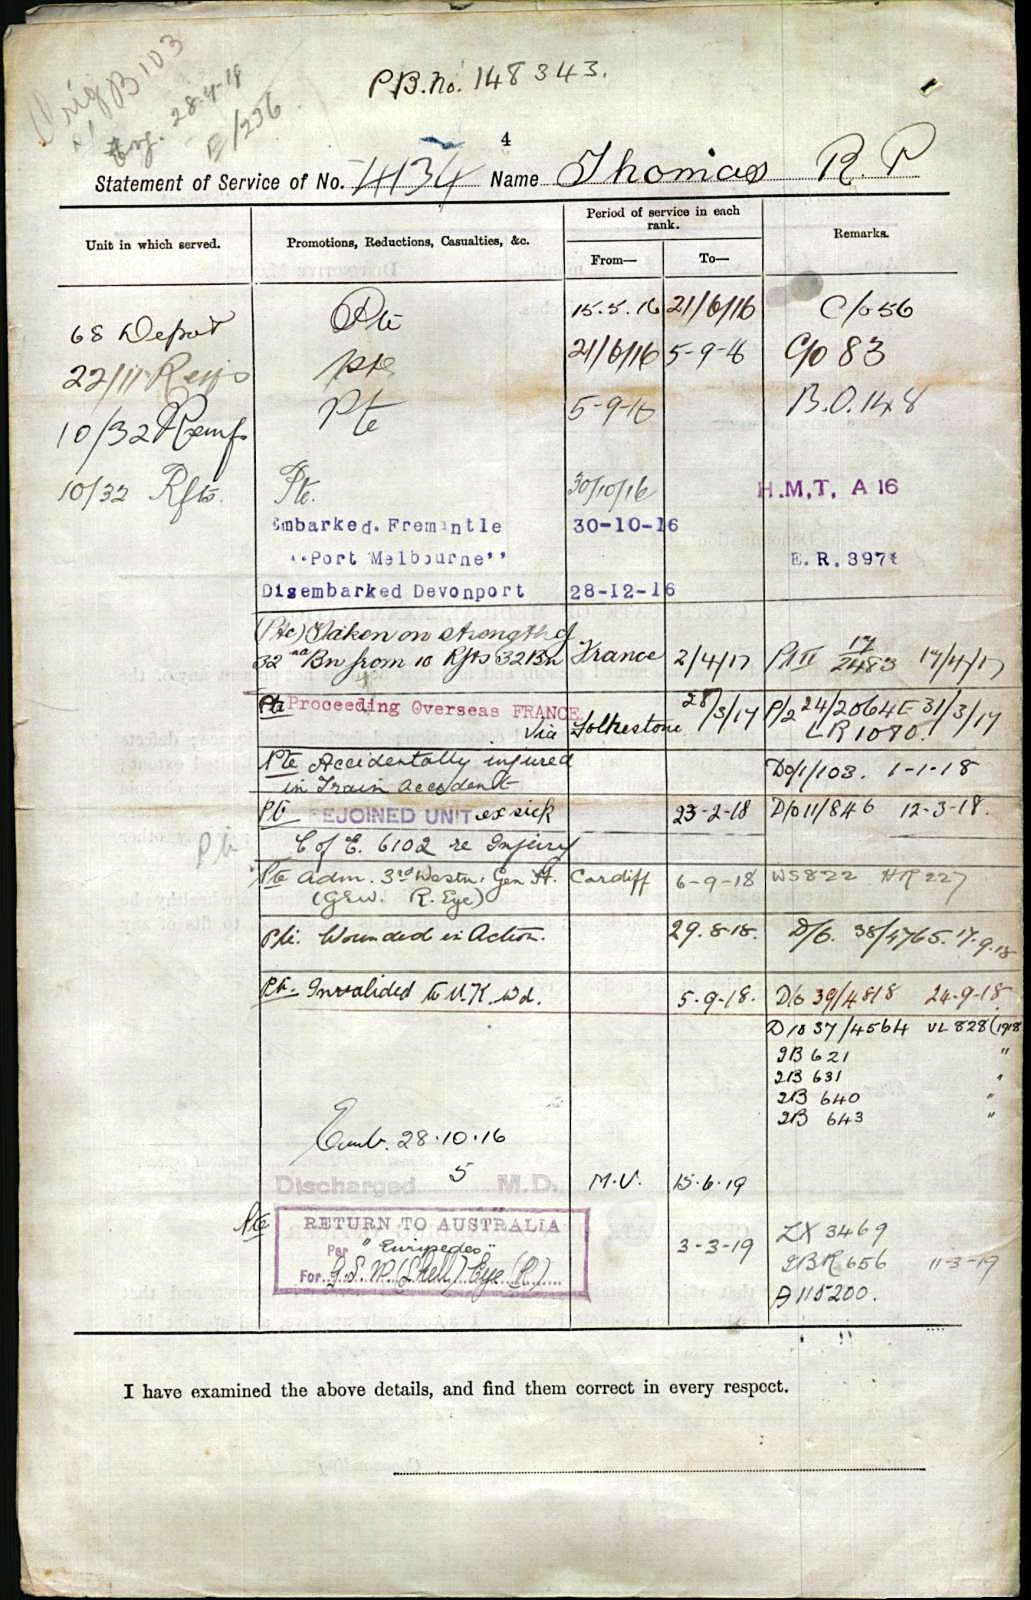 Orig B103
28.4.19
B/236
P.B. No. 148343.
4
Statement of Service of No. 4134 Name Thomas R. P
Unit in which served. Promotions, Reductions, Casualties, &c. Period of service in each rank. Remarks.
From— To—
68 Depot Pte 15.5.16 21/6/16 C/o 56
22/11 Reifs Pte 21/6/16 5-9-16 C/o 83
10/32 Reinfs Pte 5-9-16 B.O. 148
10/32 Rfts. Pte. 30/10/16 H.M.T. A 16
Embarked. Fremantle 30-10-16
"Port Melbourne" E.R. 397
Disembarked Devonport 28-12-16
(Pte) Taken on strength of
32nd Bn from 10 Rfts 32 Bn France 2/4/17 Pt II 17/2483 17/4/17
Pte Proceeding Overseas FRANCE 28/3/17 P/2 24/2064E 31/3/17
Via Folkestone LR 1080.
Pte Accidentally injured DO/1/103. 1-1-18
in Train accident
Pte REJOINED UNIT ex sick 23-2-18 D/O 11/846 12-3-18.
C of E. 6102 re Injury
Pte
Pte adm. 3rd Westn. Gen H. Cardiff 6-9-18 WS822 HR 227
(GSW. R. Eye)
Pte. Wounded in Action. 29.8.18. D/O. 38/4765. 17.9.18
Pte. Invalided to U.K. Wd. 5-9-18. D/O 39/4818 24-9-18
D/O 37/4564 VL 828 (1918
2B 621 "
2B 631 "
2B 640 "
2B 643 "
Emb. 28.10.16
Discharged 5 M.D. M.U. 15.6.19
Pte RETURN TO AUSTRALIA 3-3-19 LX 3469
Per "Euripedes" 2BR 656 11-3-19
For G.S.W (Shell) Eye (R) A 115200.
I have examined the above details, and find them correct in every respect.